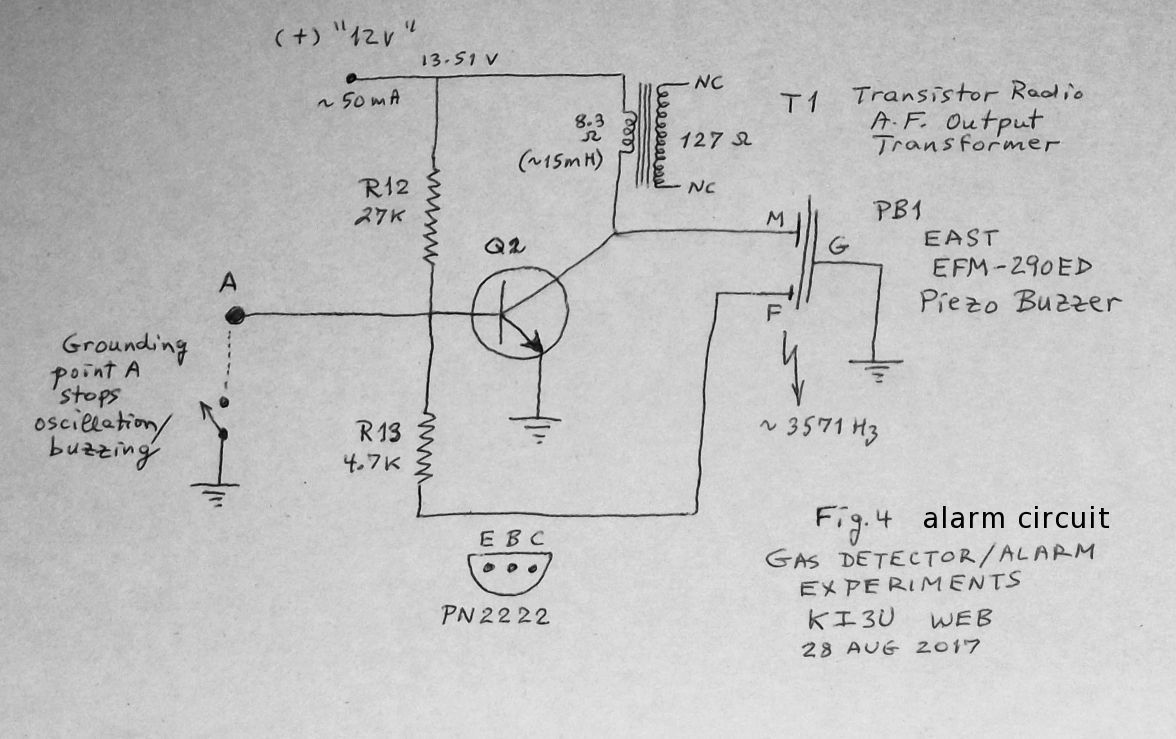 (+) "12V"
13.51 V
~ 50mA
NC
8.3
Ω
(~15mH)
127 Ω
NC
T1 Transistor Radio
A.F. Output
Transformer
R12
27K
Q2
M
G
F
PB1
EAST
EFM-290ED
Piezo Buzzer
A
Grounding
point A
stops
oscillation/
buzzing
R13
4.7K
~ 3571 Hz
E B C
PN2222
Fig.4 alarm circuit
GAS DETECTOR/ALARM
EXPERIMENTS
KI3U WEB
28 AUG 2017